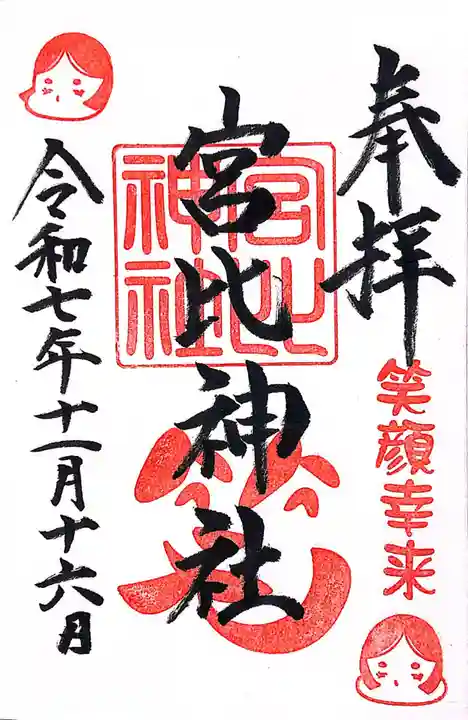 奉拝
笑顔幸来
宮比神社
宮比
神社
令和七年十一月十六月